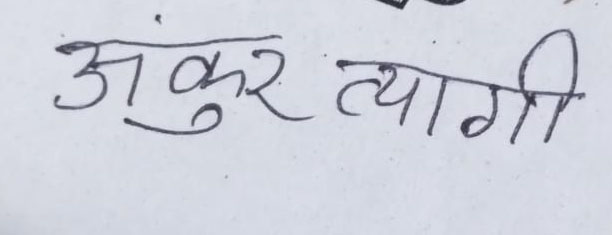 अंकुर त्यागी